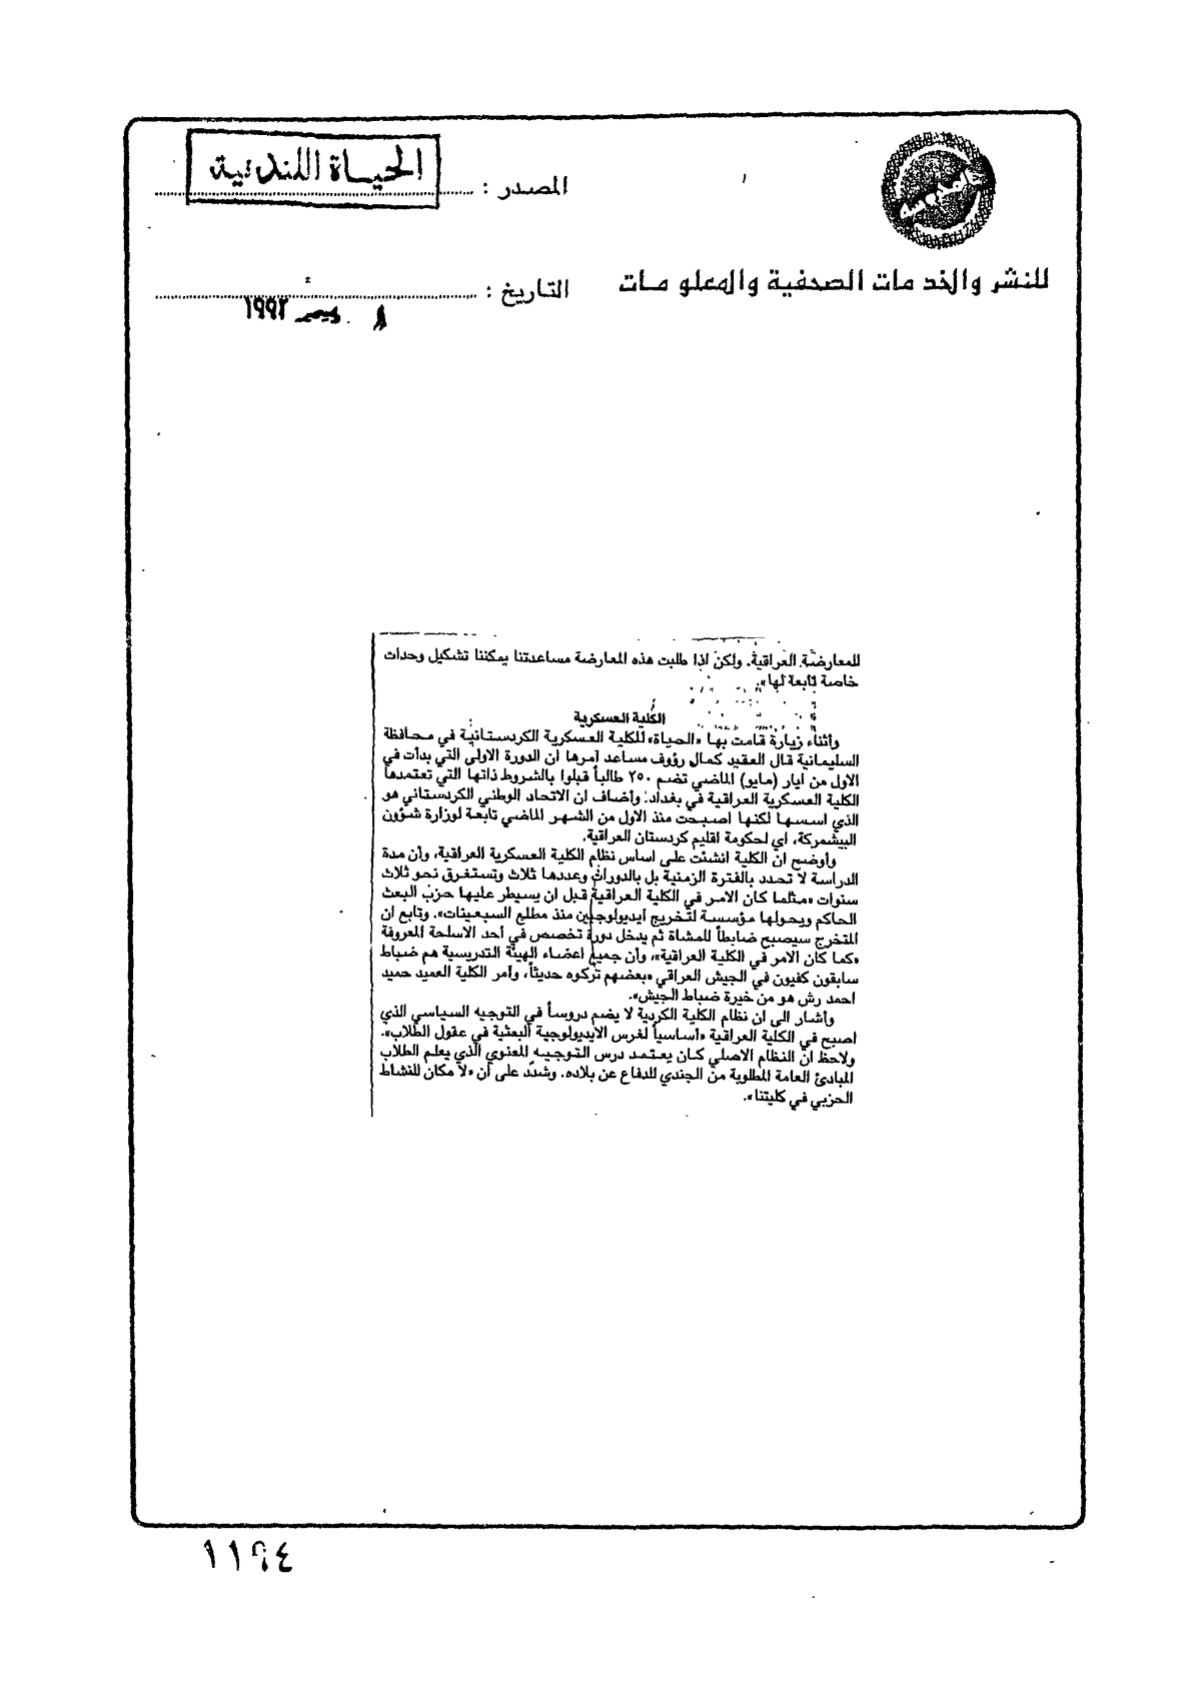 المصدر : الحياة اللندنية
للنشر والخدمات الصحفية والمعلومات
التاريخ : ديسمبر ١٩٩٢
للمعارضة العراقية. ولكن اذا طلبت هذه المعارضة مساعدتنا يمكننا تشكيل وحدات
خاصة تابعة لها».
الكلية العسكرية
وأثناء زيارة قامت بها «الحياة» للكلية العسكرية الكردستانية في محافظة
السليمانية قال العقيد كمال رؤوف مساعد آمرها ان الدورة الاولى التي بدأت في
الاول من ايار (مايو) الماضي تضم ٢٥٠ طالباً قبلوا بالشروط ذاتها التي تعتمدها
الكلية العسكرية العراقية في بغداد. وأضاف ان الاتحاد الوطني الكردستاني هو
الذي اسسها لكنها اصبحت منذ الاول من الشهر الماضي تابعة لوزارة شؤون
البيشمركة، اي لحكومة اقليم كردستان العراقية.
وأوضح ان الكلية انشئت على اساس نظام الكلية العسكرية العراقية، وأن مدة
الدراسة لا تحدد بالفترة الزمنية بل بالدورات وعددها ثلاث وتستغرق نحو ثلاث
سنوات «مثلما كان الامر في الكلية العراقية قبل ان يسيطر عليها حزب البعث
الحاكم ويحولها مؤسسة لتخريج ايديولوجيين منذ مطلع السبعينات». وتابع ان
المتخرج سيصبح ضابطاً للمشاة ثم يدخل دورة تخصص في أحد الاسلحة المعروفة
«كما كان الامر في الكلية العراقية»، وأن جميع اعضاء الهيئة التدريسية هم ضباط
سابقون كفيون في الجيش العراقي «بعضهم تركوه حديثاً، وآمر الكلية العميد حميد
احمد رش هو من خيرة ضباط الجيش».
وأشار الى ان نظام الكلية الكردية لا يضم دروساً في التوجيه السياسي الذي
اصبح في الكلية العراقية «اساسياً لغرس الايديولوجية البعثية في عقول الطلاب».
ولاحظ ان النظام الاصلي كان يعتمد درس التوجيه المعنوي الذي يعلم الطلاب
المبادئ العامة المطلوبة من الجندي للدفاع عن بلاده. وشدّد على أن «لا مكان للنشاط
الحزبي في كليتنا».
١١٩٤